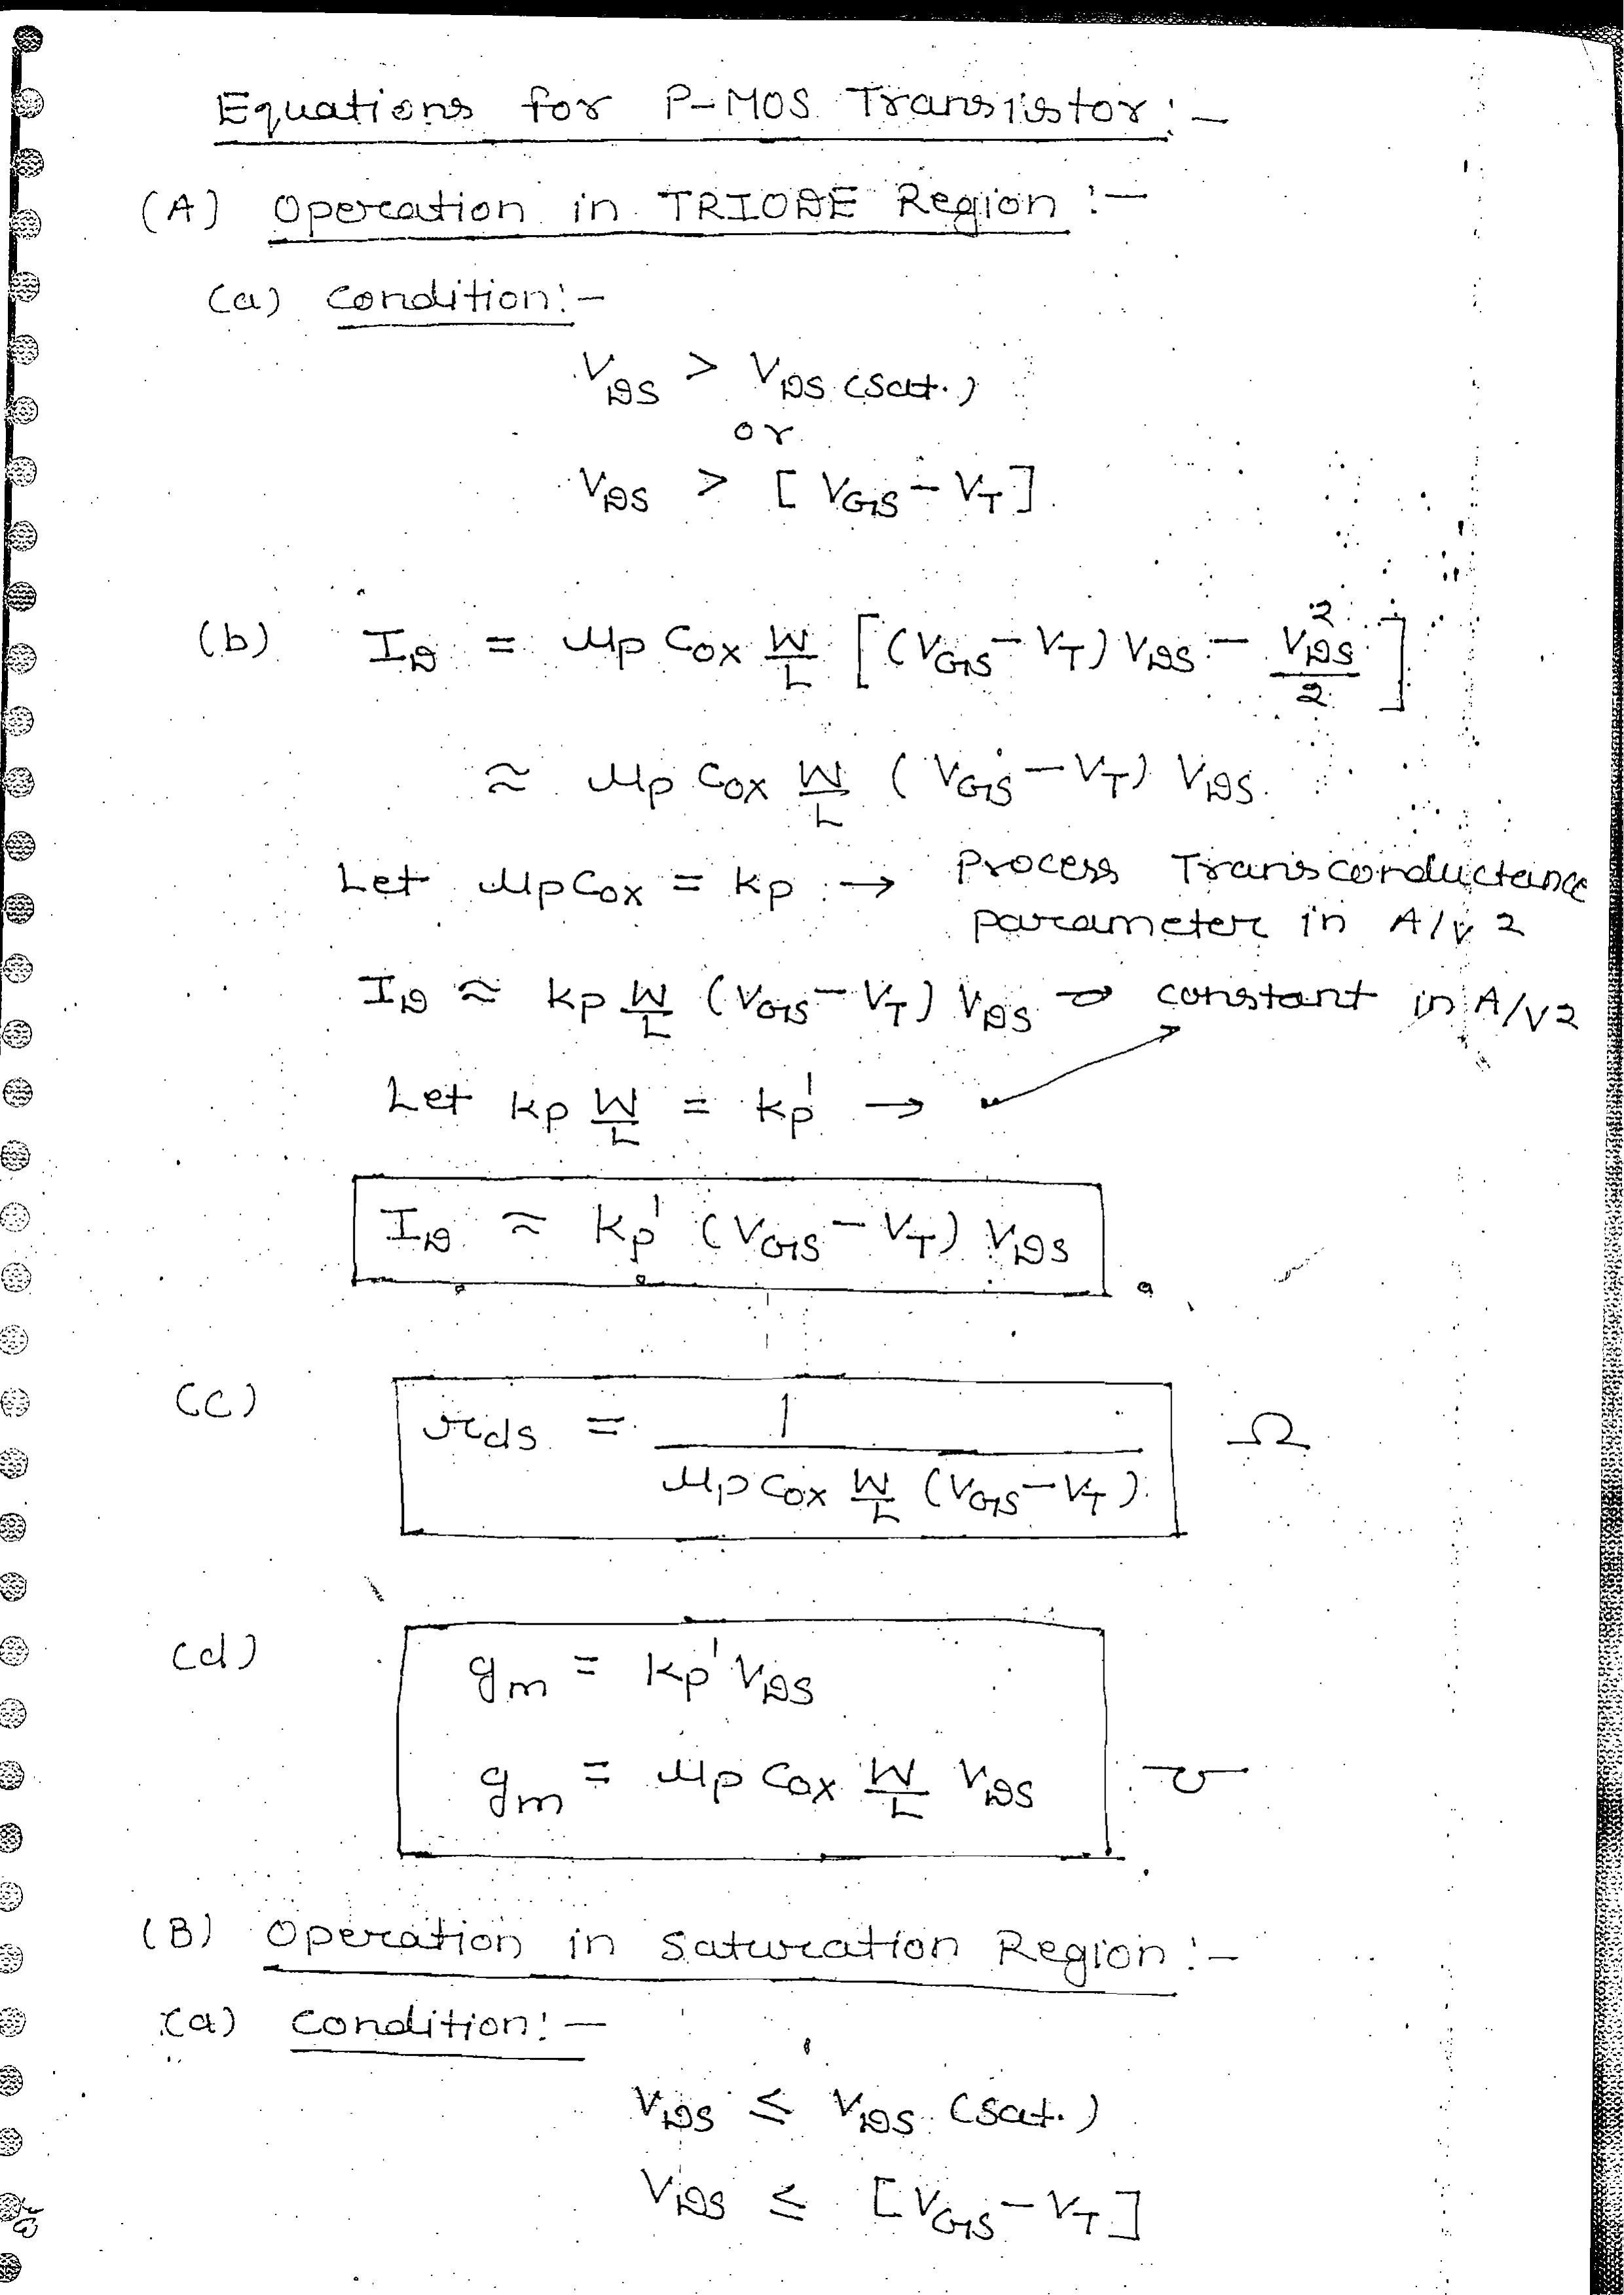 Equations for P-MOS Transistor :-
(A) Operation in TRIODE Region :-
(a) Condition :-
V_DS > V_DS (Sat.)
or
V_DS > [V_GS - V_T]
(b) I_D = μp Cox W/L [(V_GS - V_T) V_DS - V_DS²/2]
≈ μp Cox W/L (V_GS - V_T) V_DS
Let μp Cox = kp → Process Transconductance
parameter in A/V2
I_D ≈ kp W/L (V_GS - V_T) V_DS → constant in A/V2
Let kp W/L = kp' →
I_D ≈ kp' (V_GS - V_T) V_DS
(c) rds = 1 / μp Cox W/L (V_GS - V_T) Ω
(d) gm = kp' V_DS
gm = μp Cox W/L V_DS ℧
(B) Operation in Saturation Region :-
(a) Condition :-
V_DS ≤ V_DS (Sat.)
V_DS ≤ [V_GS - V_T]